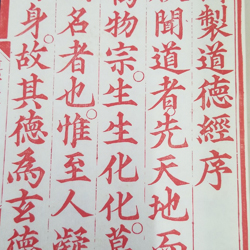 製道德經序
聞道者先天地而
物宗生生化化莫
名者也惟至人凝
身故其德為玄德